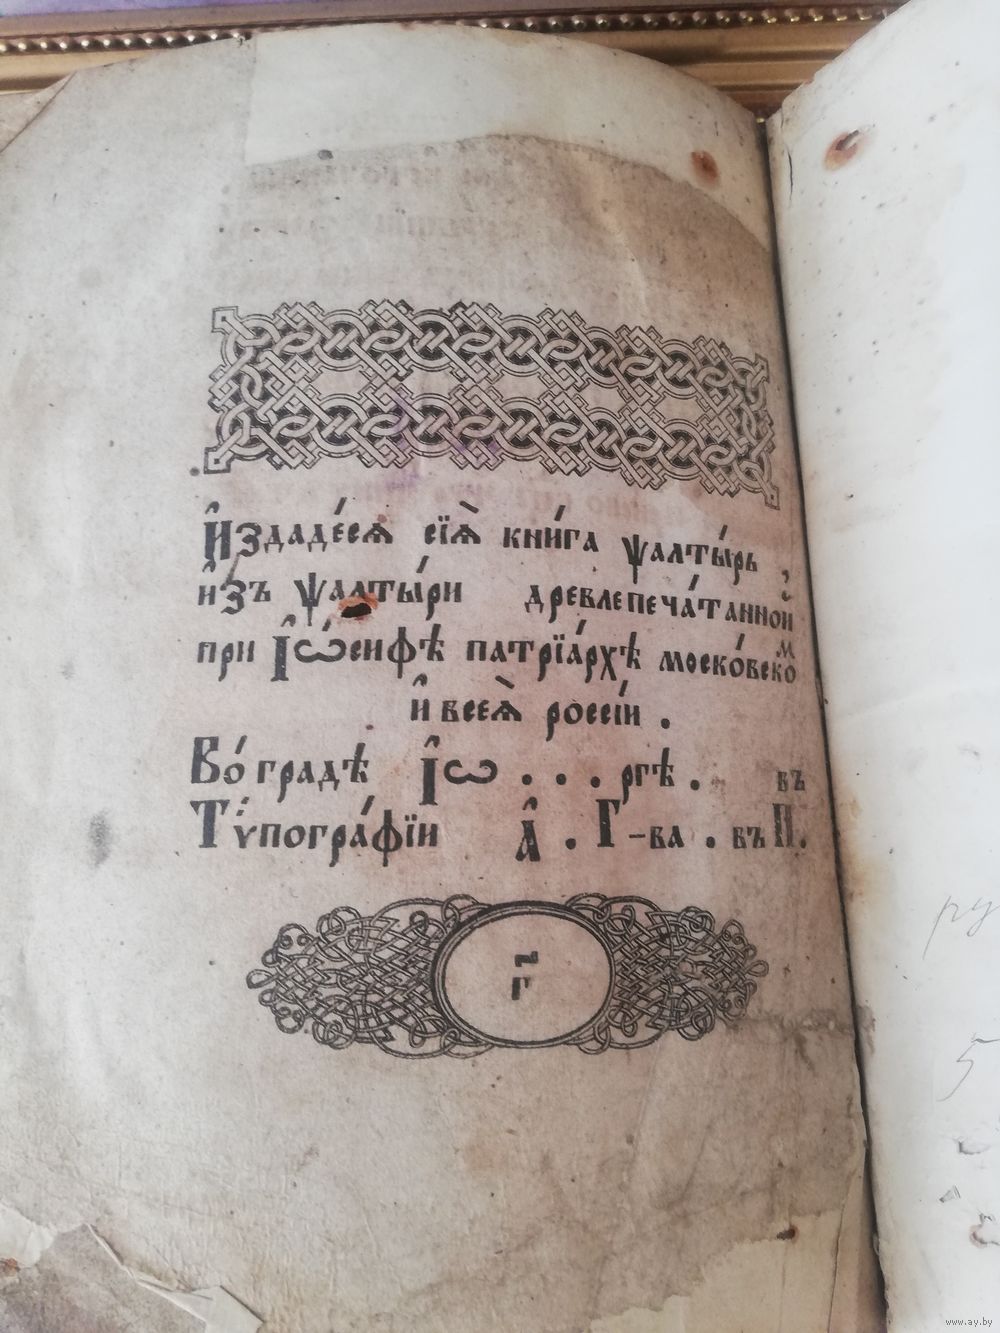 И҆здаде́сѧ сїѧ̀ кни́га ѱалты́рь
и҆зъ ѱалты́ри древлепеча́танной
при І҆ѡ́сифѣ патрїа́рхѣ моско́вско м
и҆ всеѧ̀ россі́и .
Во́ градѣ І҆ѡ . . . ргѣ . въ
Тѷпогра́фїи А҆ . Г-ва . въ П.
г҃
5
www.ay.by